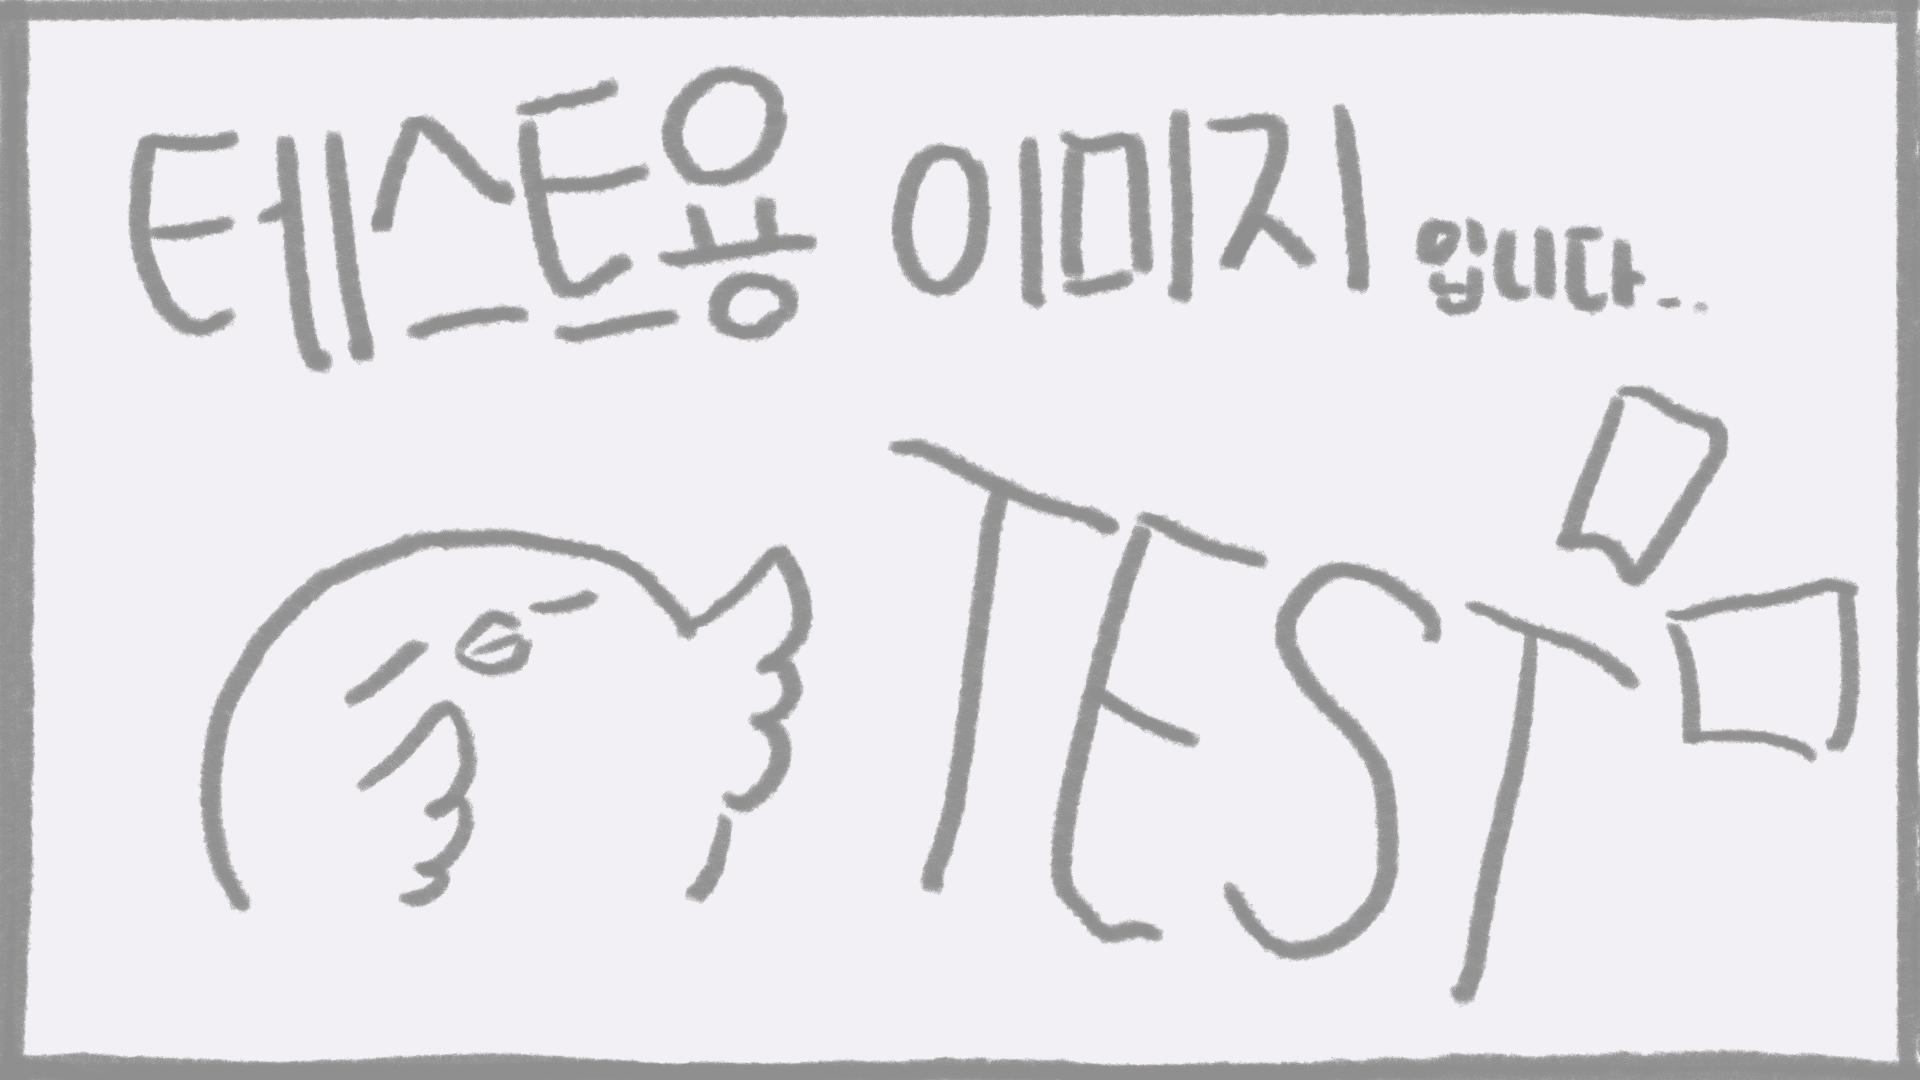 테스트용 이미지 입니다...
TEST